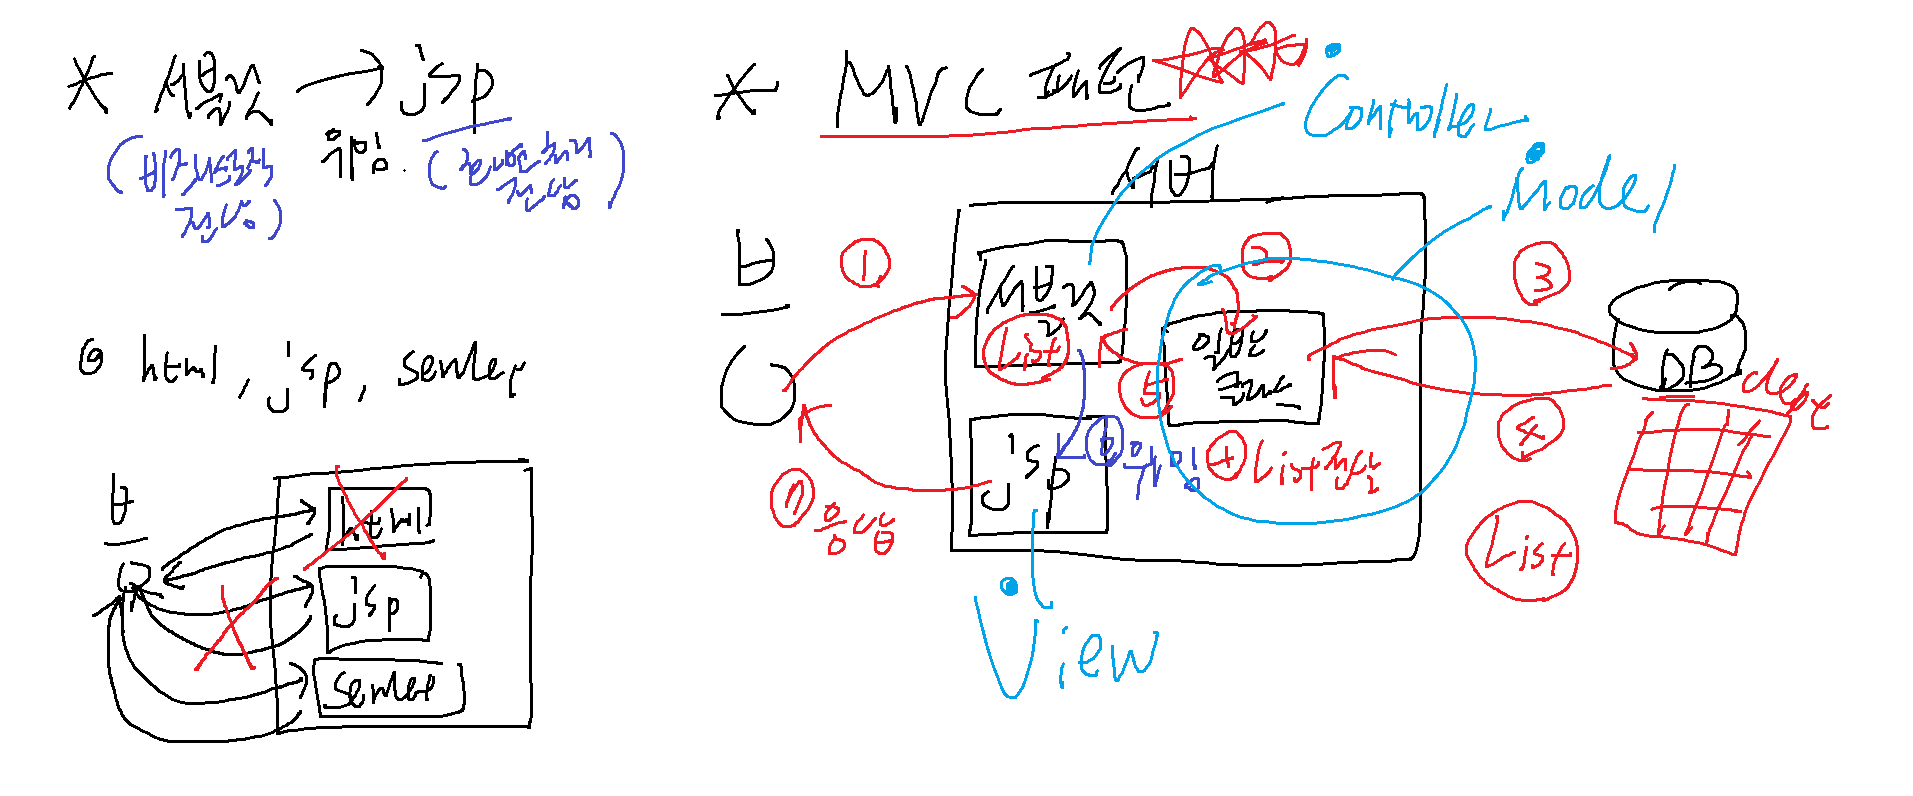 * 서블릿 → jsp
위임.
(비지니스로직
전담)
(화면처리
전담)
◎ html, jsp, servlet
브
html
jsp
servlet
* MVC 패턴
Controller
서버
Model
브
①
서블릿
List
②
③
일반
클래스
DB
dept
⑤
④
jsp
⑥ 위임
④ List 전달
⑦ 응답
List
View